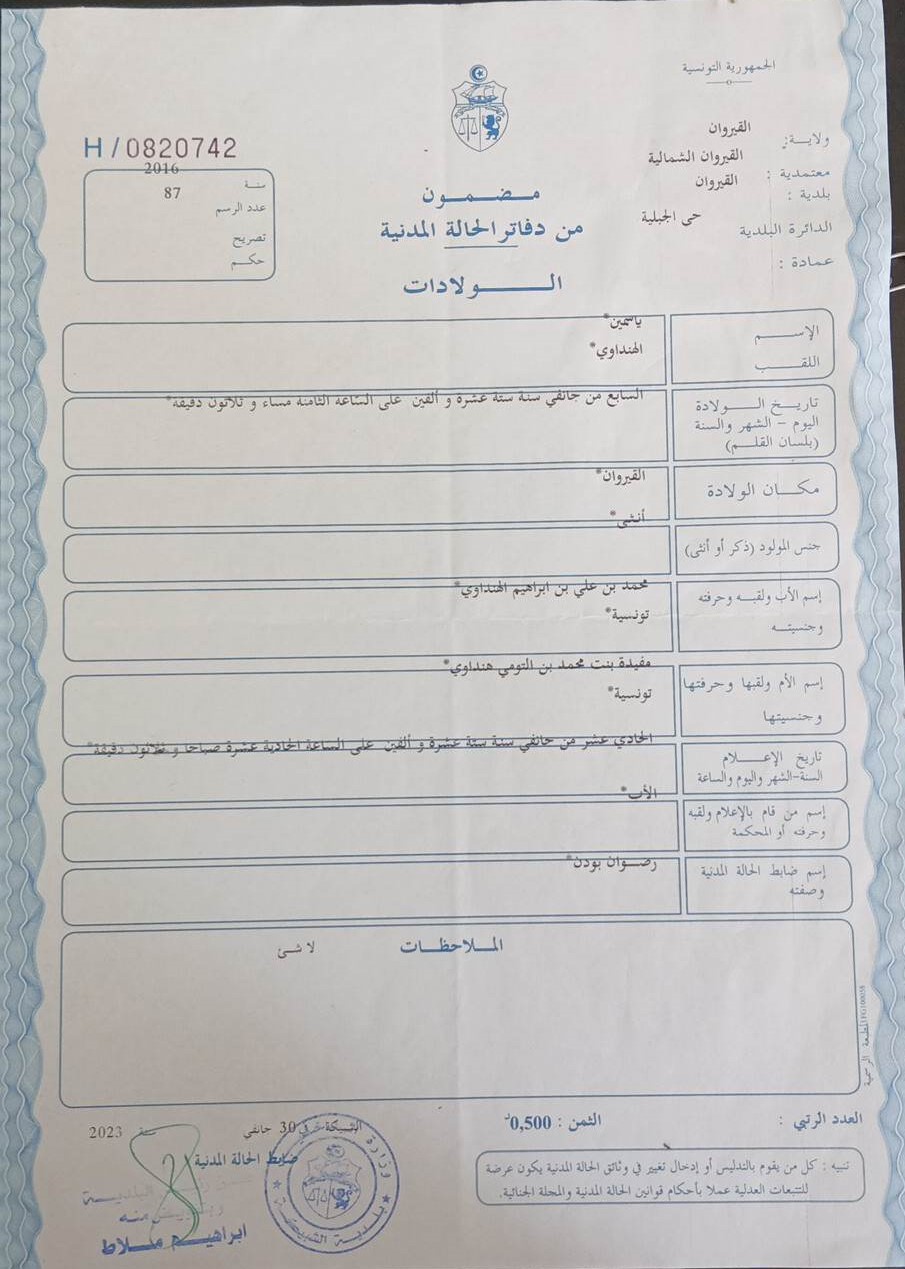 الجمهورية التونسية
ولايـــة: القيروان
معتمدية : القيروان الشمالية
بلدية : القيروان
الدائرة البلدية حى الجبلية
عمادة :
H/0820742
سنة 2016
عدد الرسم 87
تصريح
حكم
مضمون
من دفاتر الحالة المدنية
الـــولادات
الإســـم ياسمين*
اللقـــب الهنداوي*
تاريـــخ الـــولادة
اليوم - الشهر والسنة
(بلسان القلـــم)
السابع من جانفي سنة ستة عشرة و ألفين على الساعة الثامنة مساء و ثلاثون دقيقة*
مكـــان الولادة القيروان*
جنس المولود (ذكر أو أنثى) أنثى*
إسم الأب ولقبـــه وحرفته
وجنسيتـــه
محمد بن علي بن ابراهيم الهنداوي*
تونسية*
إسم الأم ولقبها وحرفتها
وجنسيتها
مفيدة بنت محمد بن التومي هنداوي*
تونسية*
تاريخ الإعـــلام
السنة-الشهر واليوم والساعة
الحادي عشر من جانفي سنة ستة عشرة و ألفين على الساعة الحادية عشرة صباحا و ثلاثون دقيقة*
إسم من قام بالإعلام ولقبه
وحرفته أو المحكمة
الأب*
إسم ضابط الحالة المدنية
وصفته
رضـــوان بودن*
الملاحظات
لا شئ
المطبعة الرسمية
العدد الرتبي :
الثمن : 0,500د
تنبيه : كل من يقوم بالتدليس أو إدخال تغيير في وثائق الحالة المدنية يكون عرضة
للتتبعات العدلية عملا بأحكام قوانين الحالة المدنية والمجلة الجنائية.
الشبيكة في 30 جانفي 2023
ضابط الحالة المدنية
ابراهيـــم مـــلاط
بلدية الشبيكة